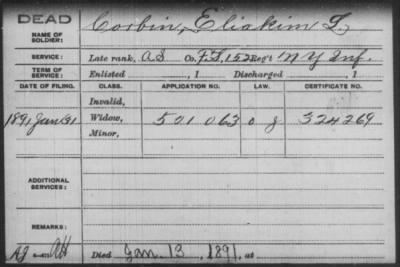 DEAD
NAME OF SOLDIER: Corbin, Eliakim
SERVICE: Late rank, A S Co. F.S, 152 Reg't N Y Inf.
TERM OF SERVICE: Enlisted , 1 Discharged , 1
DATE OF FILING. CLASS. APPLICATION NO. LAW. CERTIFICATE NO.
Invalid,
1891 Jan 31 Widow, 501 063 324269
Minor,
ADDITIONAL SERVICES:
REMARKS:
Died Jan. 13, 1891, at